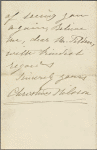 of seeing you
again, believe
me, dear Mr.
with kindest
regards
Sincerely yours
Christine Nilsson